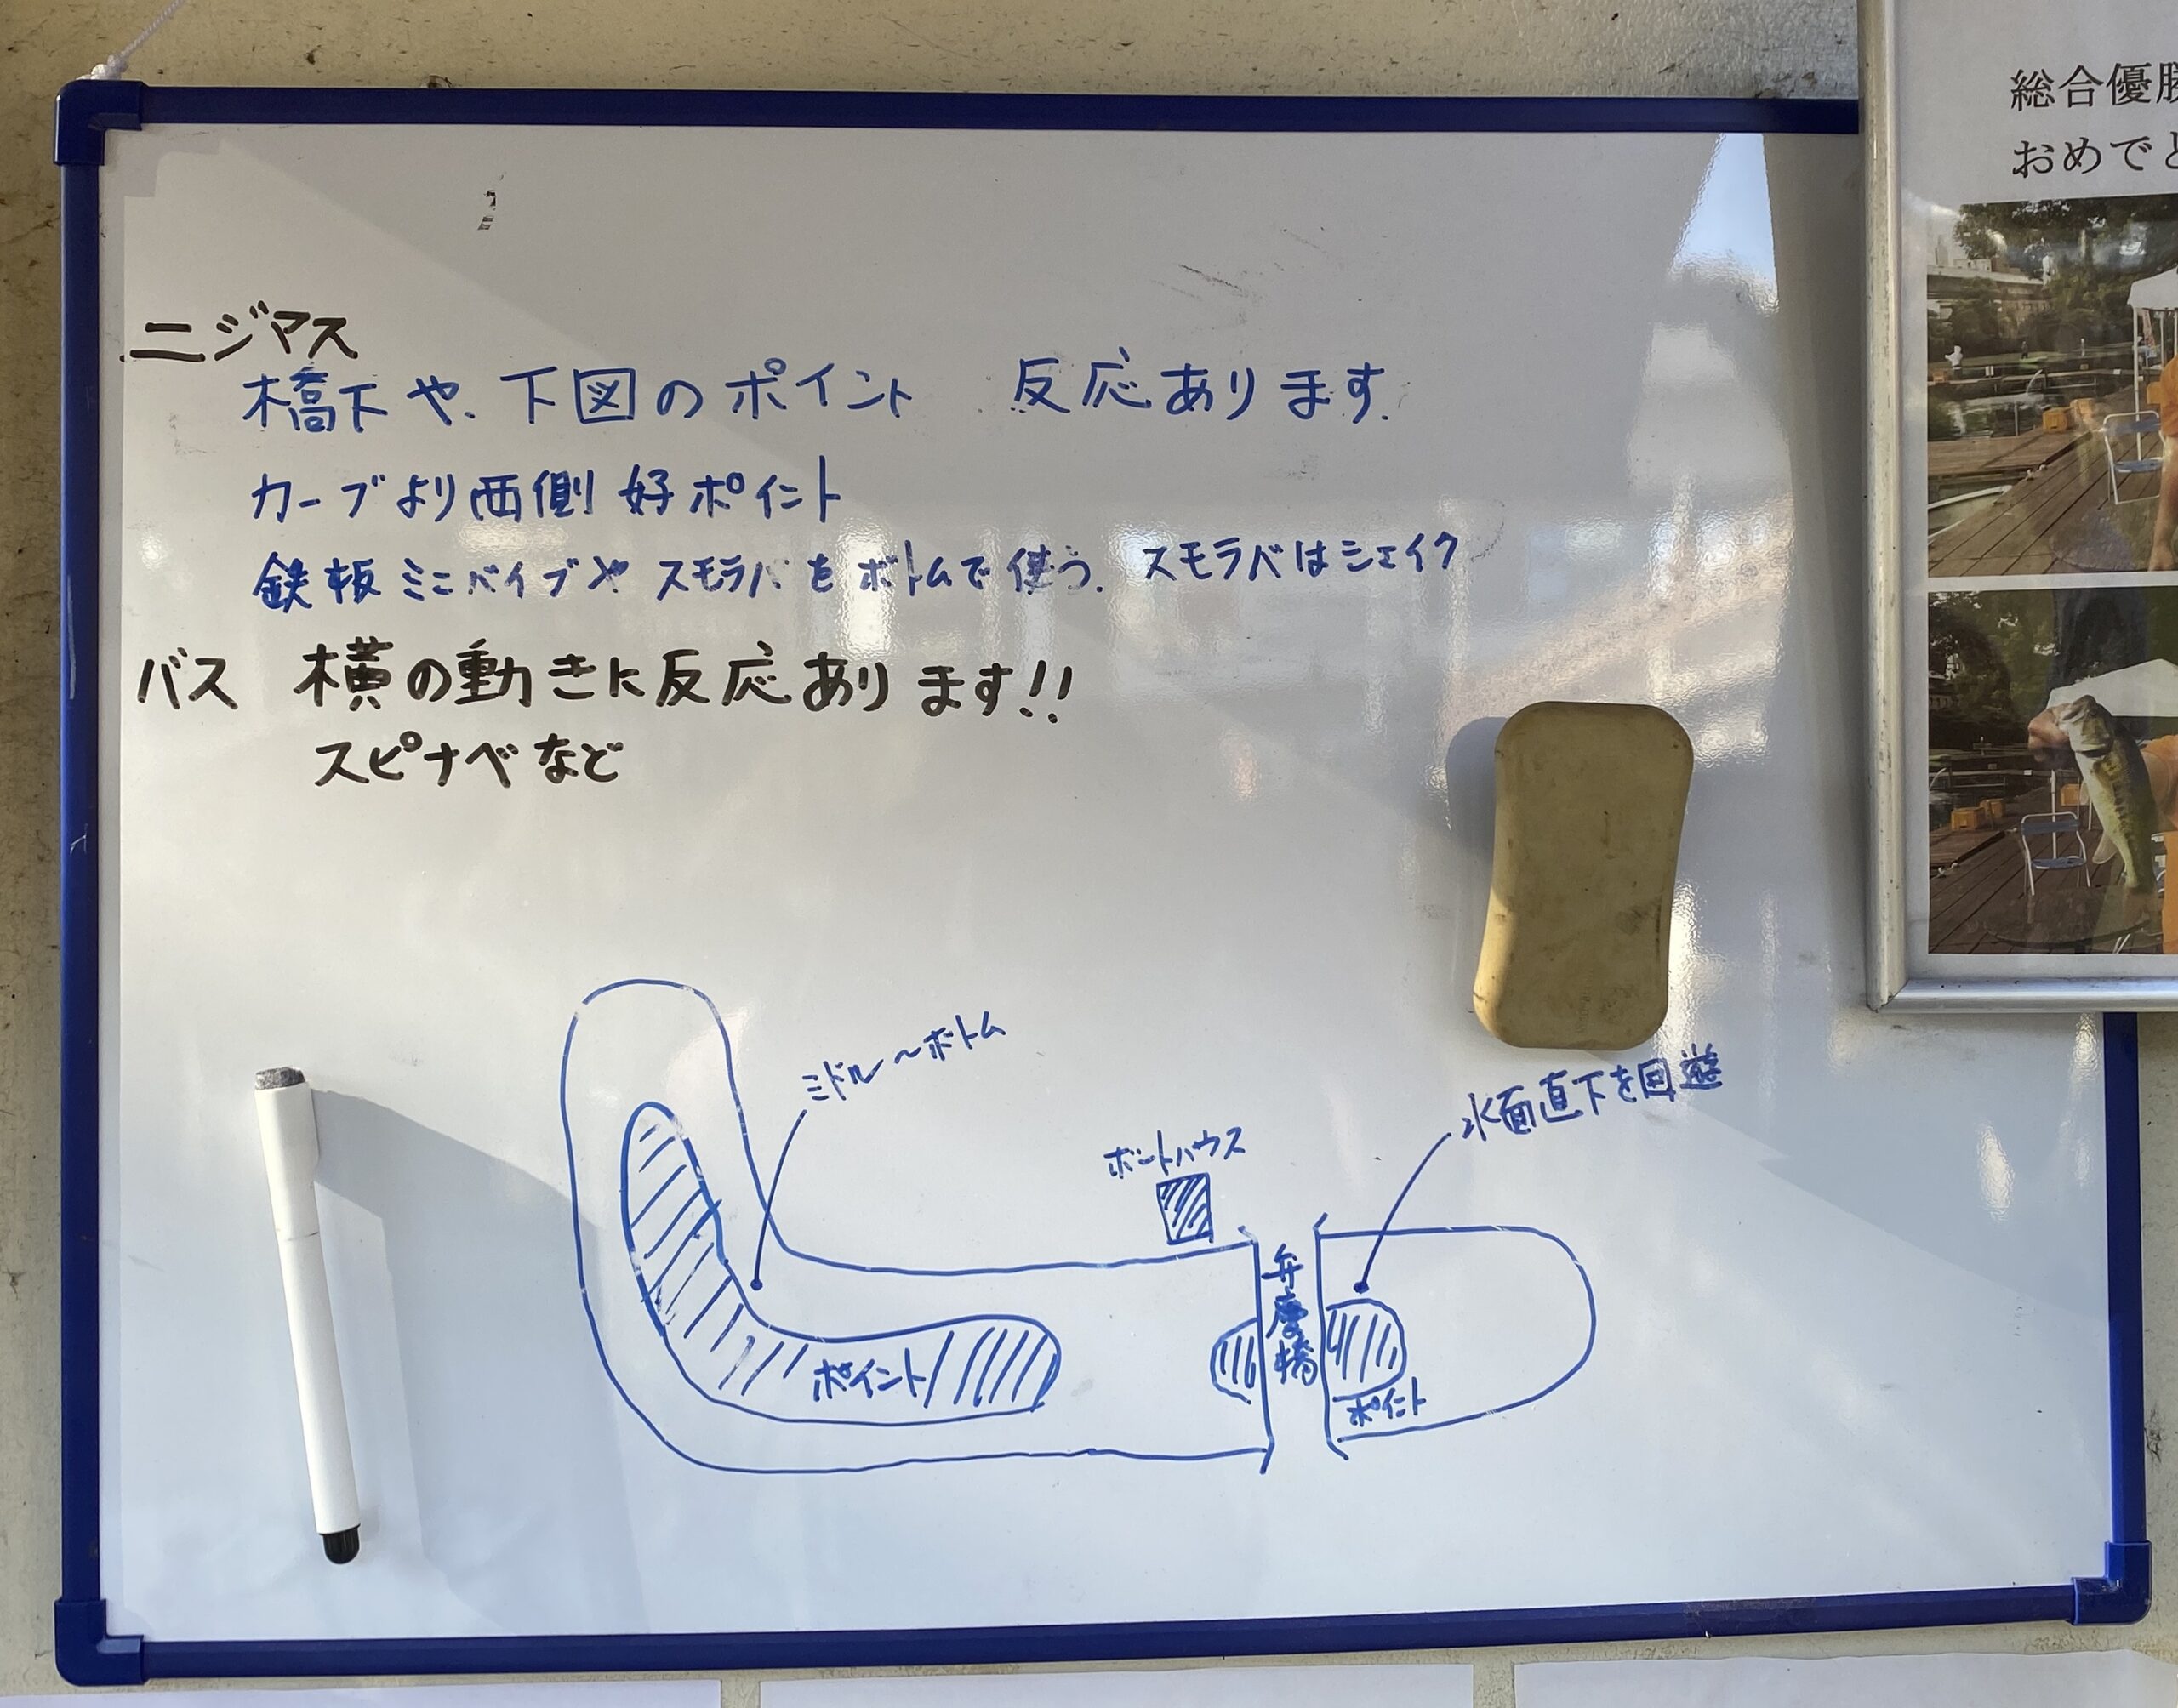 ニジマス
橋下や、下図のポイント 反応あります。
カーブより西側 好ポイント
鉄板ミニバイブや スモラバをボトムで使う。スモラバはシェイク
バス 横の動きに反応あります!!
スピナベなど
ミドル〜ボトム
水面直下を回遊
ボートハウス
弁慶橋
ポイント
ポイント
総合優勝
おめでと